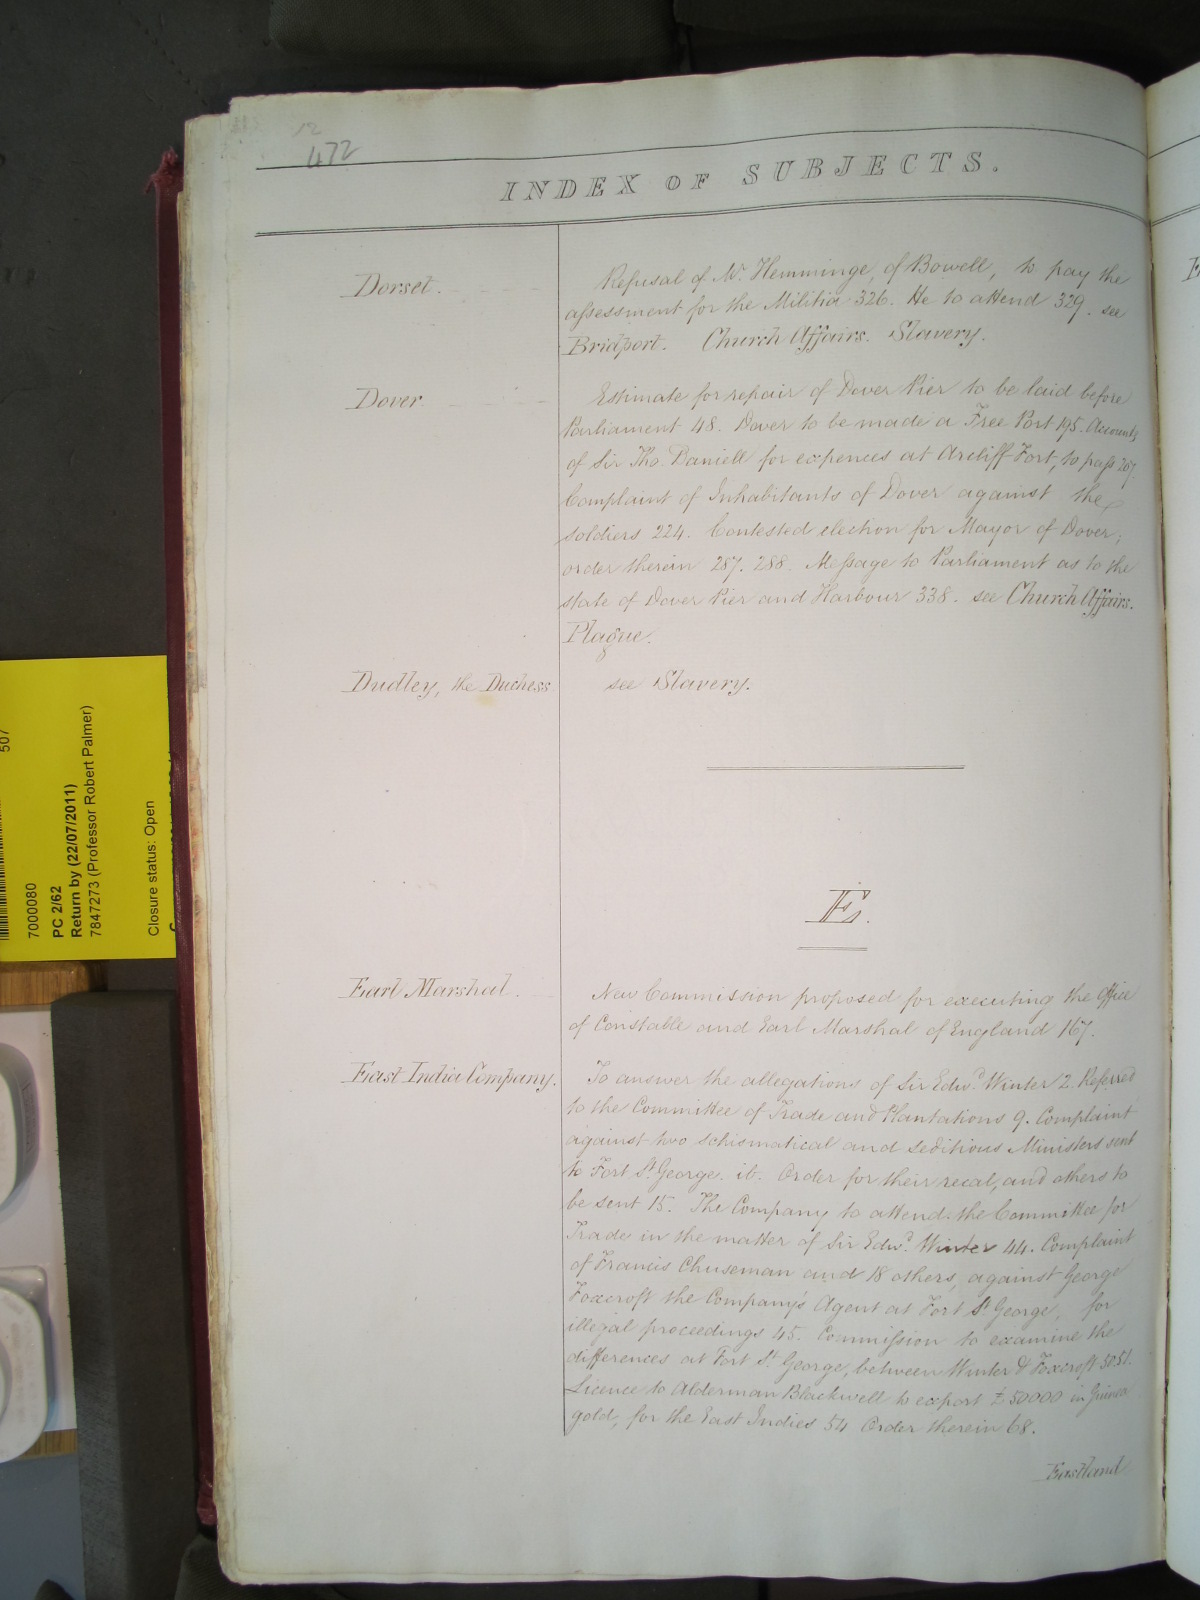 12
472
INDEX OF SUBJECTS.
Dorset.
Refusal of Mr. Hemminge, of Bowell, to pay the
assessment for the Militia 326. He to attend 329. see
Bridport. Church Affairs. Slavery.
Dover
Estimate for repair of Dover Pier to be laid before
Parliament 48. Dover to be made a Free Port 195. Accounts
of Sir Tho. Daniell for expences at Arcliff Fort, to pass 207.
Complaint of Inhabitants of Dover against the
soldiers 224. Contested election for Mayor of Dover;
order therein 287. 288. Message to Parliament as to the
state of Dover Pier and Harbour 338. see Church Affairs.
Plague.
Dudley, the Duchess
see Slavery.
E.
Earl Marshal.
New Commission proposed for executing the Office
of Constable and Earl Marshal of England 167.
East India Company.
To answer the allegations of Sir Edwd. Winter 2. Referred
to the Committee of Trade and Plantations 9. Complaint
against two schismatical and seditious Ministers sent
to Fort St. George. ib. Order for their recal, and others to
be sent 15. The Company to attend the Committee for
Trade in the matter of Sir Edwd. Winter 44. Complaint
of Francis Chuseman and 18 others, against George
Foxcroft the Company's Agent at Fort St George, for
illegal proceedings 45. Commission to examine the
differences at Fort St. George, between Winter & Foxcroft 50.51.
Licence to Alderman Blackwell to export £50000 in Guinea
gold, for the East Indies 54 Order therein 68.
Eastland
507
7000080
PC 2/62
Return by (22/07/2011)
7847273 (Professor Robert Palmer)
Closure status: Open